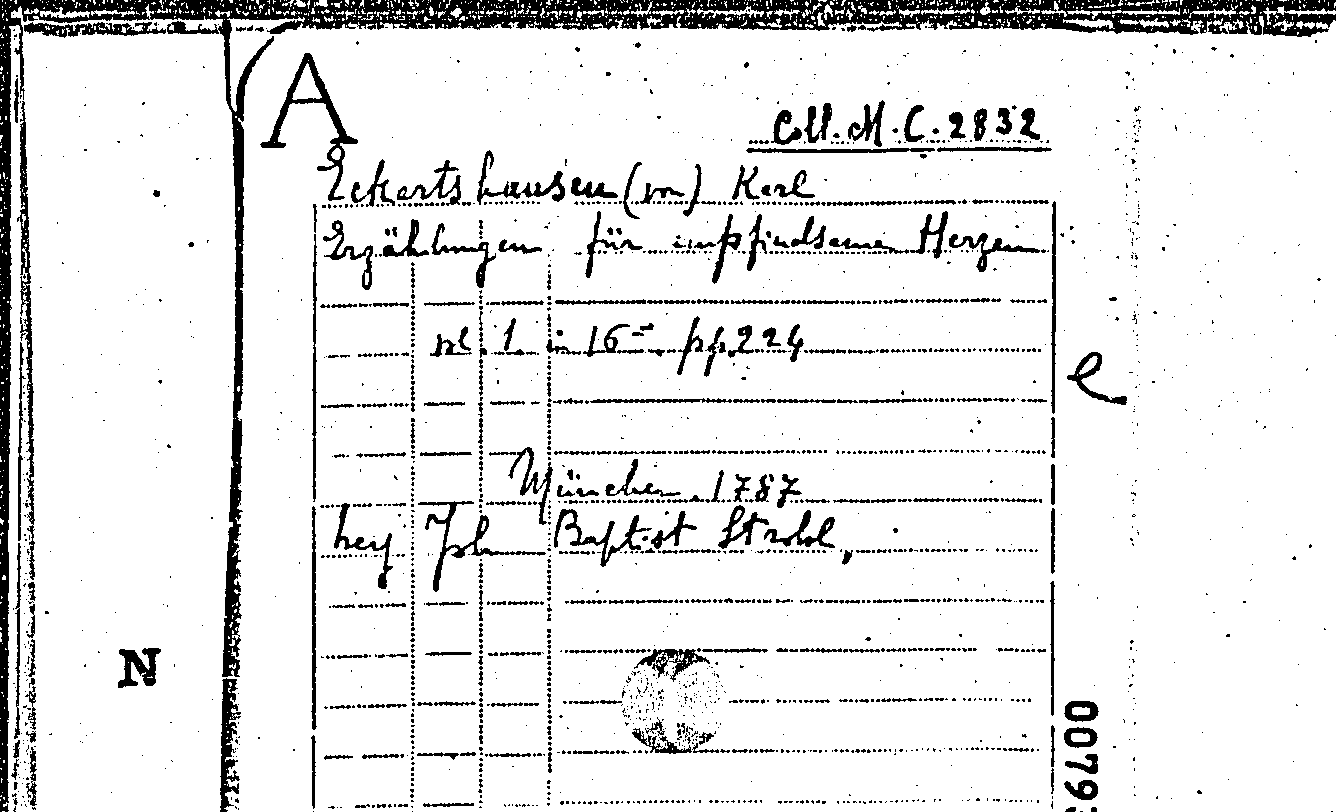 A
Coll. M. C. 2832
Eckartshausen (von) Karl
Erzählungen für empfindsame Herzen
vol. 1. in 16= pp. 224
e
München. 1787
bey Joh Baptist Strobl,
N
0079